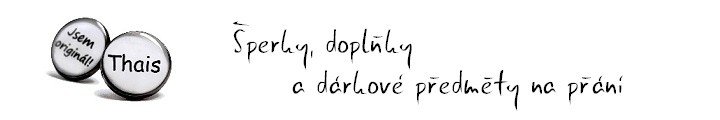 Jsem
originál!
Thais
Šperky, doplňky
a dárkové předměty na přání